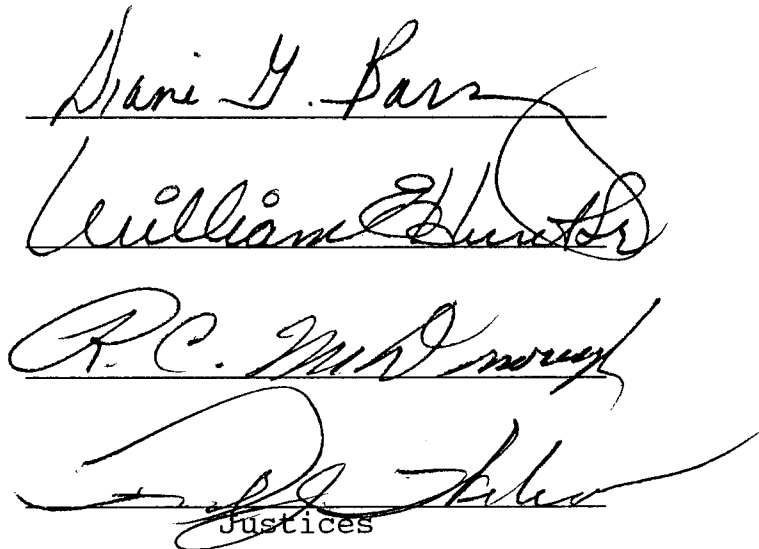 Diane G. Barz
William E Hunt Sr
R. C. McDonough
Justices